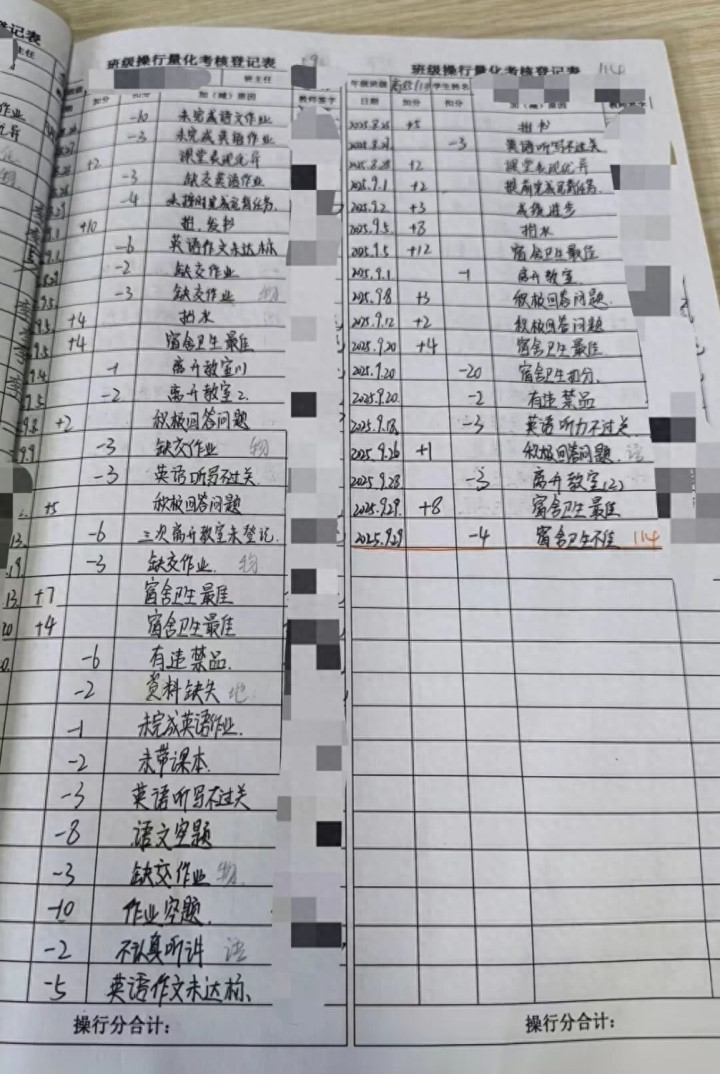 记表
主任
作业
优异
班级操行量化考核登记表
班主任
加分 扣分 加(减)原因 教师签字
-10 未完成语文作业
-3 未完成英语作业
+2 课堂表现优异
-3 缺交英语作业
-4 未按时完成完育任务.
+10 担、发书
-6 英语作文未达标
-2 缺交作业
-3 缺交作业 物
+4 担水
+4 宿舍卫生最佳
-1 离开教室(1)
-2 离开教室2.
+2 积极回答问题
-3 缺交作业 物
-3 英语听写不过关.
+5 积极回答问题
-6 三次离开教室未登记.
-3 缺交作业. 物
+7 宿舍卫生最佳
+4 宿舍卫生最佳
-6 有违禁品.
-2 资料缺失 地
-1 未完成英语作业.
-2 未带课本.
-3 英语听写不过关
-8 语文空题
-3 缺交作业 物.
-10 作业空题.
-2 不认真听讲 语
-5 英语作文未达标、
操行分合计:
班级操行量化考核登记表 114
年级班级 学生姓名
日期 加分 扣分 加(减)原因 教师签字
2025.8.26 +5 担书
2025.8.27 -3 英语听写不过关
2025.8.28 +2 课堂表现优异
2025.9.1 +2
2025.9.2 +3 成绩进步
2025.9.5 +8 担水
2025.9.5 +12 宿舍卫生最佳
2025.9.1 -1 离开教室
2025.9.8 +3 积极回答问题.
2025.9.12 +2 积极回答问题
2025.9.20 +4 宿舍卫生最佳
2025.9.20 -20 宿舍卫生扣分.
2025.9.20. -2 有违禁品
2025.9.18. -3 英语听力不过关
2025.9.26 +1 积极回答问题. 语
2025.9.28 -3 离开教室(2)
2025.9.29. +8 宿舍卫生最佳
2025.9.29 -4 宿舍卫生不佳 114
操行分合计: